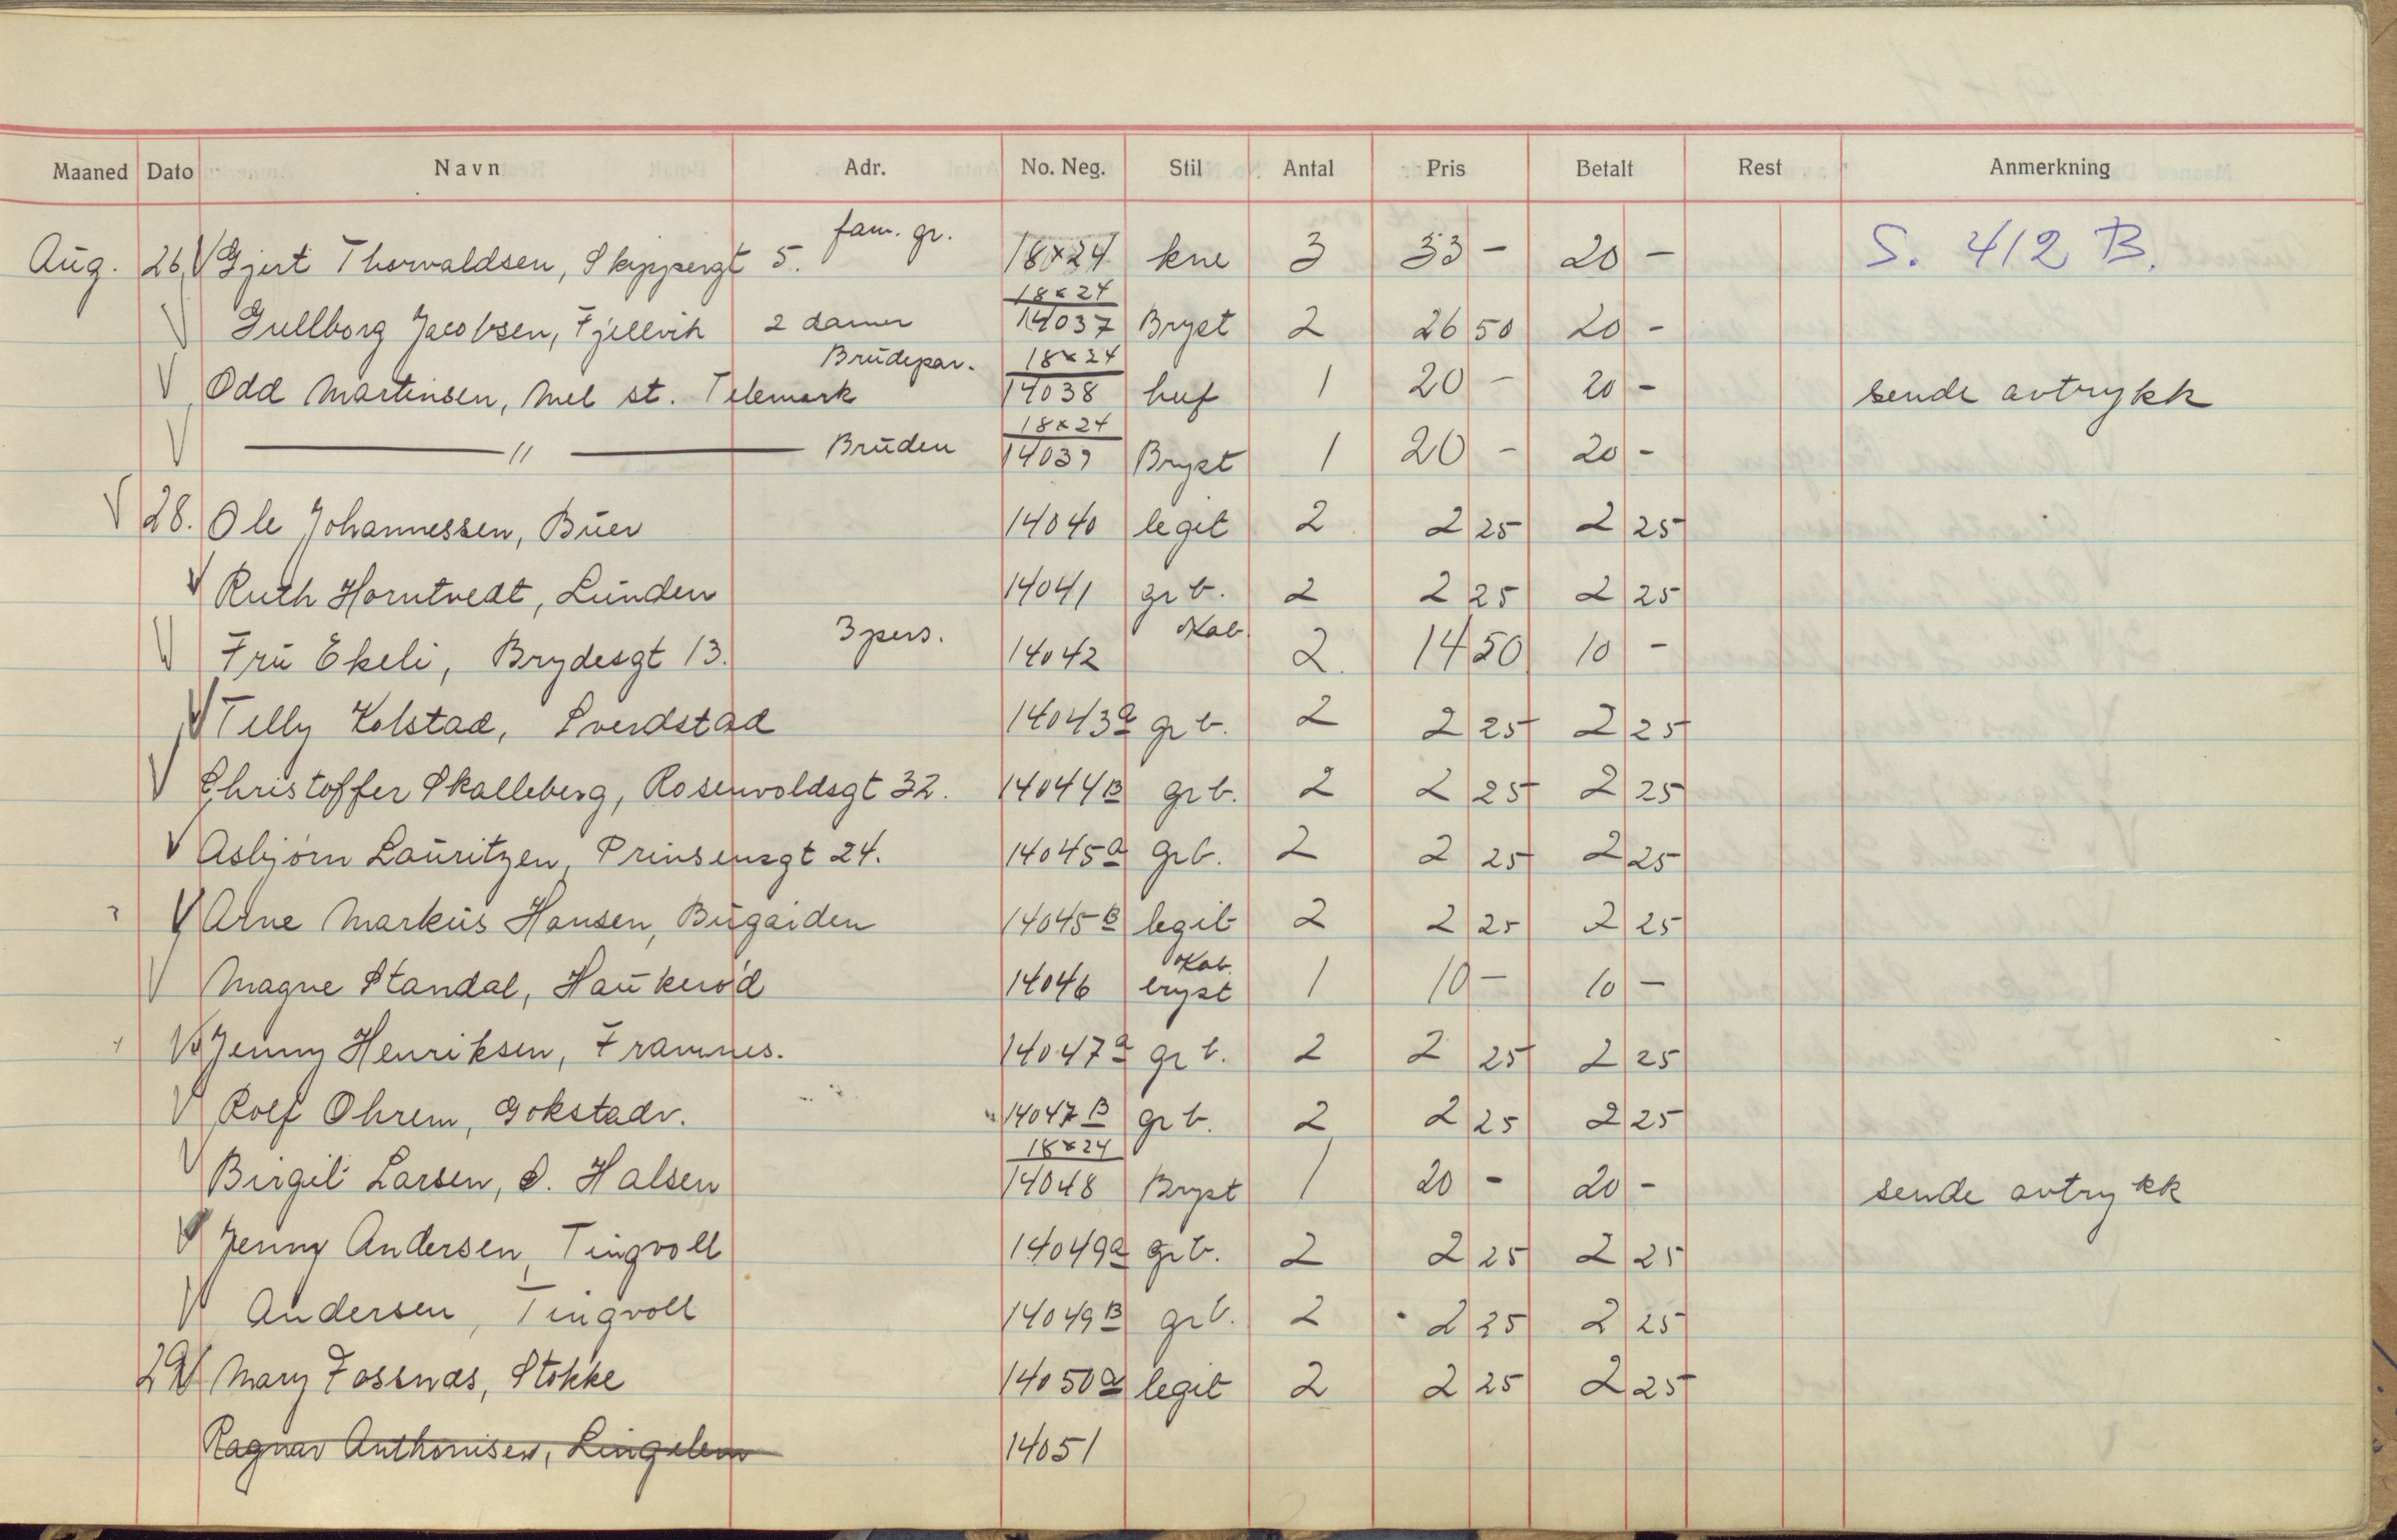 Maaned Dato Navn Adr. No. Neg. Stil Antal Pris Betalt Rest Anmerkning
Aug. 26. V Gjert Thorvaldsen, Skippergt 5. fam. gr. 18x24 kne 3 33 - 20 - S. 412 B.
V Gullborg Jacobsen, Fjellvik 2 damer 18x24 14037 Bryst 2 26 50 20 -
V Odd Martinsen, Mel st. Telemark Brudepar. 18x24 14038 1 20 - 20 - sende avtrykk
V — " — Bruden 18x24 14039 Bryst 1 20 - 20 -
V 28. Ole Johannessen, Buer 14040 legit 2 2 25 2 25
V Ruth Horntvedt, Lunden 14041 gr b. 2 2 25 2 25
V Fru Ekeli, Brydesgt 13. 3 pers. 14042 Kab. 2 14 50 10 -
V Telly Kolstad, Sverdstad 14043a gr b. 2 2 25 2 25
V Christoffer Skalleberg, Rosenvoldsgt 32. 14044B gr b. 2 2 25 2 25
V Asbjørn Lauritzen, Prinsensgt 24. 14045a gr b. 2 2 25 2 25
V Arne Markus Hansen, Bugården 14045B legit 2 2 25 2 25
V Magne Standal, Haukerød 14046 Kab. bryst 1 10 - 10 -
V Jenny Henriksen, Framnes. 14047a gr b. 2 2 25 2 25
V Rolf Ohrem, Gokstadv. 14047B gr b. 2 2 25 2 25
V Birgit Larsen, Ø. Halsen 18x24 14048 Bryst 1 20 - 20 - sende avtrykk
V Jenny Andersen, Tingvoll 14049a gr b. 2 2 25 2 25
V Andersen, Tingvoll 14049B gr b. 2 2 25 2 25
29 V Mary Fossnæs, Stokke 14050a legit 2 2 25 2 25
Ragnar Anthonisen, Lingelem 14051